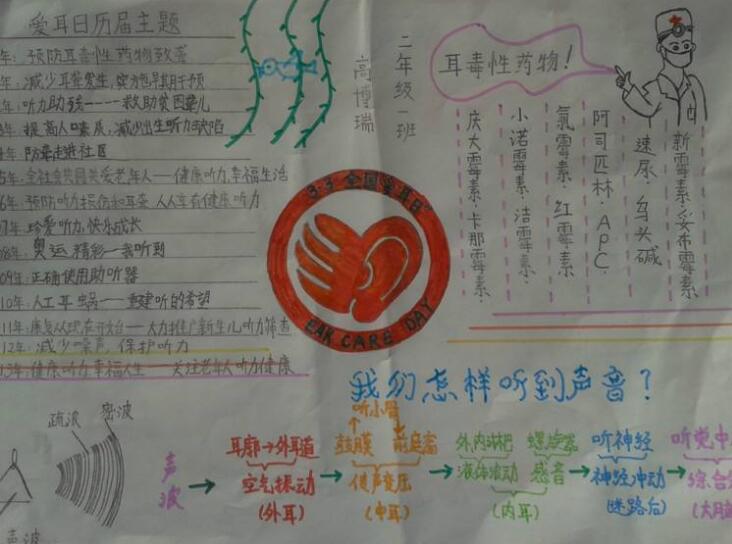 爱耳日历届主题
年：预防耳毒性药物致聋
年：减少耳聋发生，实施早期干预
年：听力助残——救助贫困聋儿
年 提高人口素质，减少出生听力缺陷
年 防聋走进社区
5年：全社会共同关爱老年人——健康听力,幸福生活
6年：预防听力损伤和耳聋 人人享有健康听力
07年：珍爱听力,快乐成长
08年：奥运精彩——我听到
009年：正确使用助听器
10年：人工耳蜗——重建听的希望
11年：康复从现在开始——大力推广新生儿听力筛查
12年：减少噪声，保护听力
13年：健康听力,幸福人生——关注老年人听力健康
二年级一班
高博瑞
耳毒性药物！
新霉素·妥布霉素·
速尿·乌头碱
阿司匹林·APC·
氯霉素·红霉素·
小诺霉素·洁霉素·
庆大霉素·卡那霉素·
3·3全国爱耳日
EAR CARE DAY
我们怎样听到声音？
疏波 密波
声波
声波
耳廓→外耳道
空气振动
(外耳)
听小骨
鼓膜 前庭窗
传声变压
(中耳)
外内淋巴 螺旋器
液体波动 感音
(内耳)
听神经
神经冲动
(迷路后)
听觉中
综合
(大脑